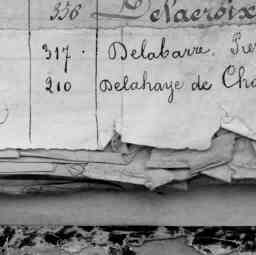 336 Delacroix
317. Delabarre.
210 Delahaye de